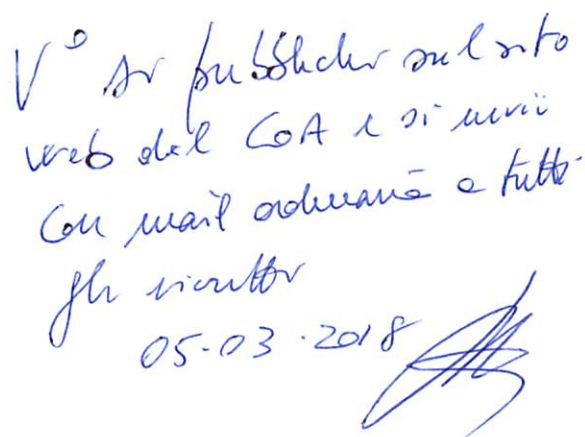 V° si pubblichi sul sito
web del COA e si invii
con mail ordinaria a tutti
gli iscritti
05-03-2018